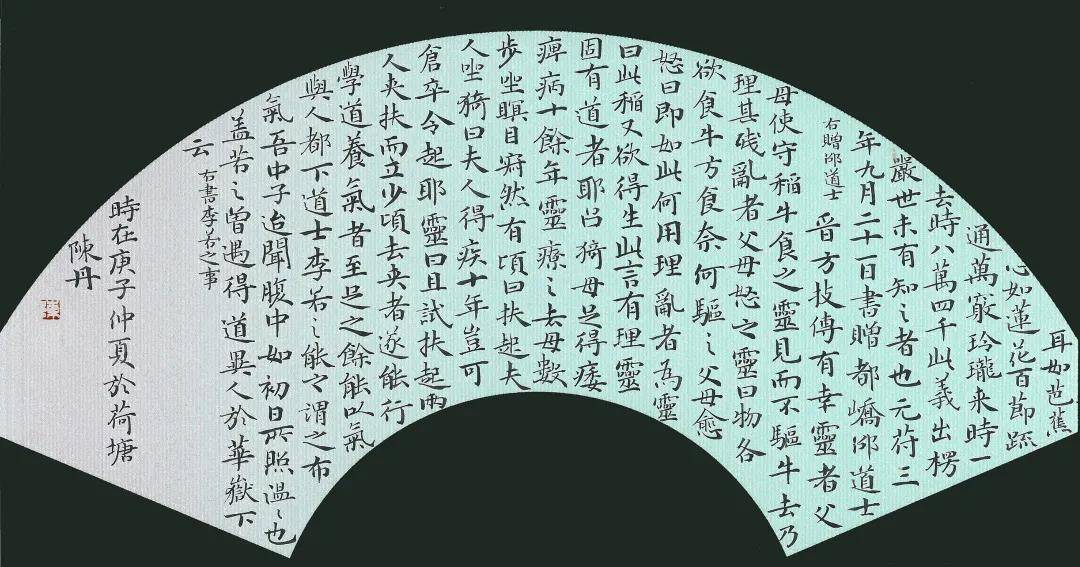 耳如芭蕉
心如蓮花百節疏
通萬竅玲瓏来時一
去時八萬四千此義出楞
嚴世未有知之者也元符三
年九月二十一日書贈都嶠邵道士
右贈邵道士 晉方技傳有幸靈者父
母使守稻牛食之靈見而不驅牛去乃
理其殘亂者父母怒之靈曰物各
欲食牛方食奈何驅之父母愈
怒曰即如此何用理亂者為靈
曰此稻又欲得生此言有理靈
固有道者耶呂猗母足得痿
痺病十餘年靈療之去母數
步坐瞑目寂然有頃曰扶起夫
人坐猗曰夫人得疾十年豈可
倉卒令起耶靈曰且試扶起兩
人夾扶而立少頃去夾者遂能行
學道養氣者至足之餘能以氣
與人都下道士李若之能之謂之布
氣吾中子迨聞腹中如初日所照溫之也
盖若之曾遇得道異人於華嶽下
云 右書李若之事
時在庚子仲夏於荷塘
陳丹